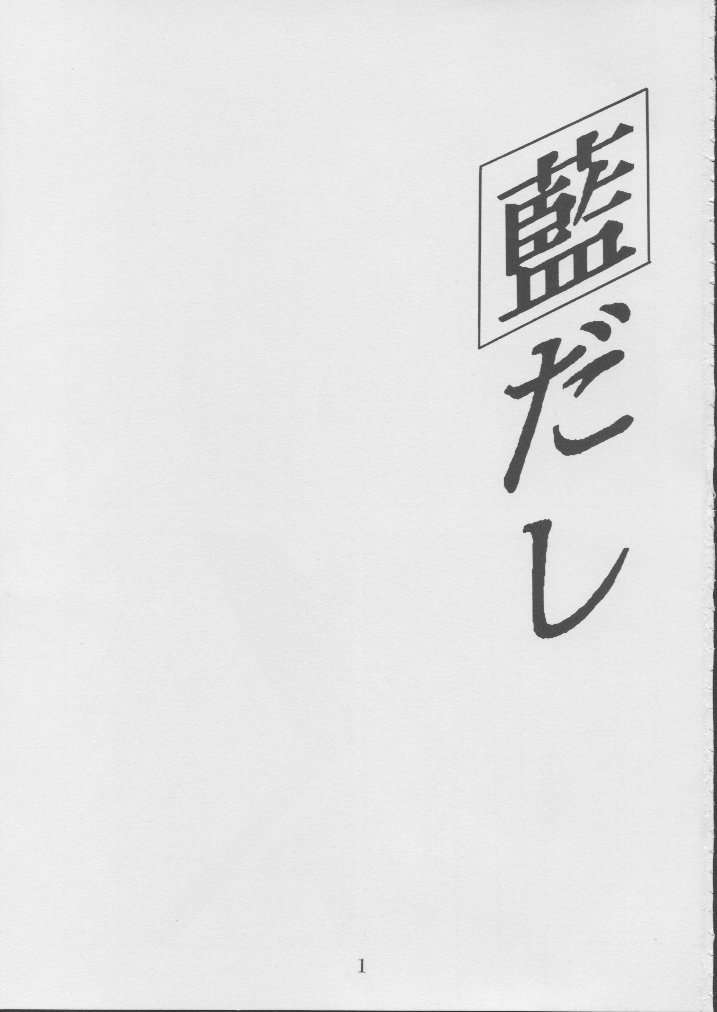 藍だし
1